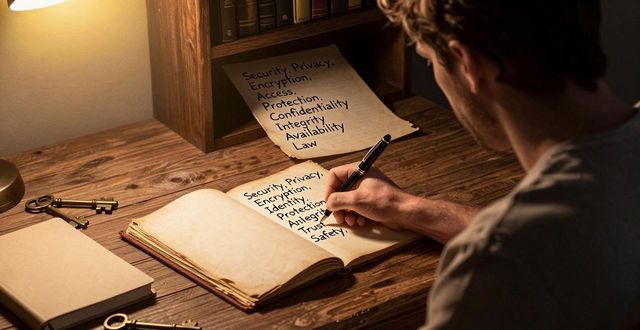 Security, Privacy,
Encryption,
Access,
Protection,
Confidentiality
Integrity
Availability
Law
Security, Privacy,
Encryption,
Identity,
Protection
Trust
Safety,